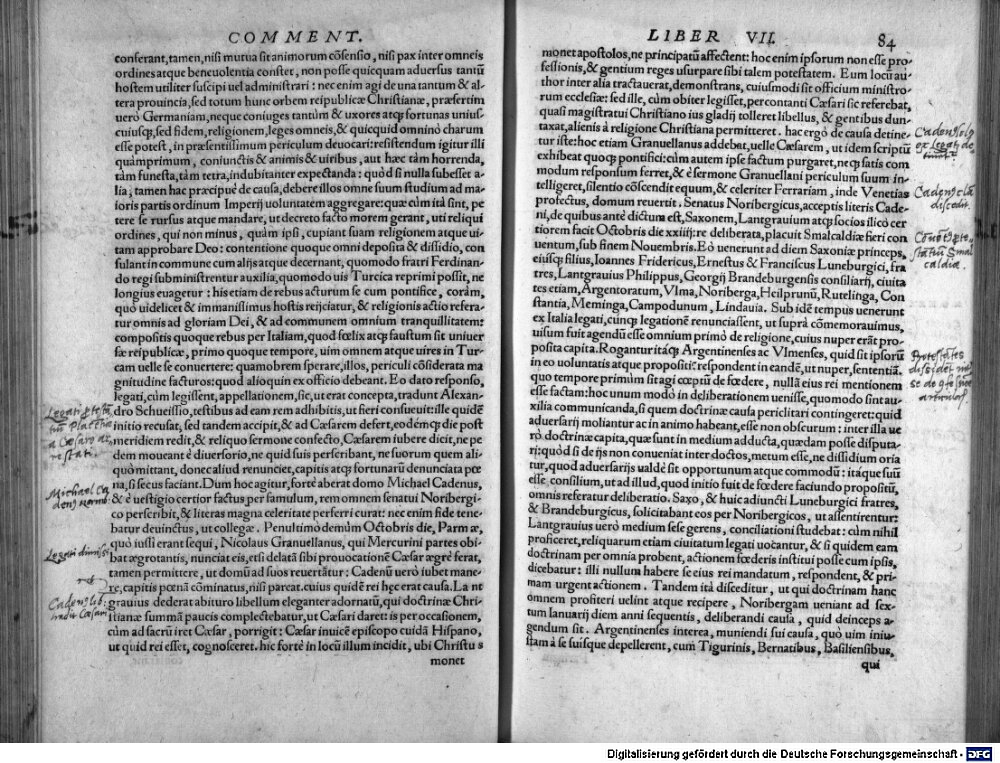 COMMENT.
conferant, tamen, nisi mutua sit animorum cōsensio, nisi pax inter omneis
ordines atque beneuolentia constet, non posse quicquam aduersus tantū
hostem utiliter suscipi uel administrari: nec enim agi de una tantum & al-
tera prouincia, sed totum hunc orbem reipublicæ Christianæ, præsertim
uerò Germaniam, neque coniuges tantùm & uxores atq; fortunas unius-
cuiusq;, sed fidem, religionem, leges omneis, & quicquid omninò charum
esse potest, in præsentissimum periculum deuocari: resistendum igitur illi
quàmprimum, coniunctis & animis & uiribus, aut hæc tàm horrenda,
tàm funesta, tàm tetra, indubitanter expectanda: quòd si nulla subesset a-
lia, tamen hac præcipuè de causa, debere illos omne suum studium ad ma-
ioris partis ordinum Imperij uoluntatem aggregare: quæ cùm ità sint, pe
tere se rursus atque mandare, ut decreto facto morem gerant, uti reliqui
ordines, qui non minus, quàm ipsi, cupiant suam religionem atque ui-
tam approbare Deo: contentione quoque omni deposita & dissidio, con
sulant in commune cum alijs atque decernant, quomodo fratri Ferdinan-
do regi subministrentur auxilia, quomodo uis Turcica reprimi possit, ne
longius euagetur: his etiam de rebus acturum se cum pontifice, coràm,
quò uidelicet & immanissimus hostis reijciatur, & religionis actio refera-
tur omnis ad gloriam Dei, & ad communem omnium tranquillitatem:
compositis quoque rebus per Italiam, quod fœlix atq; faustum sit uniuer
sæ reipublicæ, primo quoque tempore, uim omnem atque uires in Tur-
cam uelle se conuertere: quamobrem sperare, illos, periculi cōsiderata ma
gnitudine facturos: quod alioquin ex officio debeant. Eo dato responso,
legati, cùm legissent, appellationem, sic, ut erat concepta, tradunt Alexan-
dro Schueissio, testibus ad eam rem adhibitis, ut fieri consueuit: ille quidē
initio recusat, sed tandem accipit, & ad Cæsarem defert, eodemq; die post
meridiem redit, & reliquo sermone confecto, Cæsarem iubere dicit, ne pe
dem moueant è diuersorio, ne quid suis perscribant, ne suorum quem ali-
quò mittant, donec aliud renunciet, capitis atq; fortunarū denunciata pœ
na, si secus faciant. Dum hoc agitur, fortè aberat domo Michael Cadenus,
& è uestigio certior factus per famulum, rem omnem senatui Noribergi-
co perscribit, & literas magna celeritate perferri curat: nec enim fide tene-
batur deuinctus, ut collegæ. Penultimo demùm Octobris die, Parmæ,
quò iussi erant sequi, Nicolaus Granuellanus, qui Mercurini partes obi-
bat ægrotantis, nunciat eis, etsi delatā sibi prouocationē Cæsar ægrè ferat,
tamen permittere, ut domū ad suos reuertātur: Cadenū uerò iubet mane-
re, capitis pœnā cōminatus, nisi pareat. cuius quidē rei hęc erat causa. Lant
grauius dederat abituro libellum eleganter adornatū, qui doctrinæ Chri-
stianæ summā paucis complectebatur, ut Cæsari daret: is per occasionem,
cùm ad sacrū iret Cæsar, porrigit: Cæsar inuicē episcopo cuidā Hispano,
ut quid rei esset, cognosceret. hic fortè in locū illum incidit, ubi Christus
monet
Michael Ca
Legati dimissi
LIBER VII. 84
monet apostolos, ne principatū affectent: hoc enim ipsorum non esse pro-
fessionis, & gentium reges usurpare sibi talem potestatem. Eum locū au-
thor inter alia tractauerat, demonstrans, cuiusmodi sit officium ministro-
rum ecclesiæ: sed ille, cùm obiter legisset, percontanti Cæsari sic referebat,
quasi magistratui Christiano ius gladij tolleret libellus, & gentibus dun-
taxat, alienis à religione Christiana permitteret. hac ergò de causa detine-
tur iste: hoc etiam Granuellanus addebat, uelle Cæsarem, ut idem scriptū
exhibeat quoq; pontifici: cùm autem ipse factum purgaret, neq; satis com
modum responsum ferret, & è sermone Granuellani periculum suum in-
telligeret, silentio cōscendit equum, & celeriter Ferrariam, inde Venetias
profectus, domum reuertit. Senatus Noribergicus, acceptis literis Cade-
ni, de quibus antè dictum est, Saxonem, Lantgrauium atq; socios ilicò cer
tiorem facit Octobris die xxiiij: re deliberata, placuit Smalcaldiæ fieri con
uentum, sub finem Nouembris. Eò uenerunt ad diem Saxoniæ princeps,
eiusq; filius, Ioannes Fridericus, Ernestus & Franciscus Luneburgici, fra
tres, Lantgrauius Philippus, Georgij Brandeburgensis consiliarij, ciuita
tes etiam, Argentoratum, Vlma, Noriberga, Heilprunū, Rutelinga, Con
stantia, Meminga, Campodunum, Lindauia. Sub idē tempus uenerunt
ex Italia legati, cunq; legationē renunciassent, ut suprà cōmemorauimus,
uisum fuit agendū esse omnium primò de religione, cuius nuper erāt pro-
posita capita. Rogantur itáq; Argentinenses ac Vlmenses, quid sit ipsorū
in eo uoluntatis atque propositi: respondent in eandē, ut nuper, sententiā.
quo tempore primùm sit agi cœptū de fœdere, nullā eius rei mentionem
esse factam: hoc unum modò in deliberationem uenisse, quomodo sint au-
xilia communicanda, si quem doctrinæ causa periclitari contingeret: quid
aduersarij moliantur ac in animo habeant, esse non obscurum: inter illa ue
rò doctrinæ capita, quæ sunt in medium adducta, quædam posse disputa-
ri: quòd si de ijs non conueniat inter doctos, metum esse, ne dissidium oria
tur, quod aduersarijs ualdè sit opportunum atque commodū: itáque suū
esse consilium, ut ad illud, quod initio fuit de fœdere faciundo propositū,
omnis referatur deliberatio. Saxo, & huic adiuncti Luneburgici fratres,
& Brandeburgicus, solicitabant eos per Noribergicos, ut assentirentur:
Lantgrauius uerò medium sese gerens, conciliationi studebat: cùm nihil
proficeret, reliquarum etiam ciuitatum legati uocantur, & si quidem eam
doctrinam per omnia probent, actionem fœderis institui posse cum ipsis,
dicebatur: illi nullum habere se eius rei mandatum, respondent, & pri-
mam urgent actionem. Tandem ità disceditur, ut qui doctrinam hanc
omnem profiteri uelint atque recipere, Noribergam ueniant ad sex-
tum Ianuarij diem anni sequentis, deliberandi causa, quid deinceps a-
gendum sit. Argentinenses interea, muniendi sui causa, quò uim iniu-
stam à se suisque depellerent, cum Tigurinis, Bernatibus, Basiliensibus,
qui
Digitalisierung gefördert durch die Deutsche Forschungsgemeinschaft - DFG